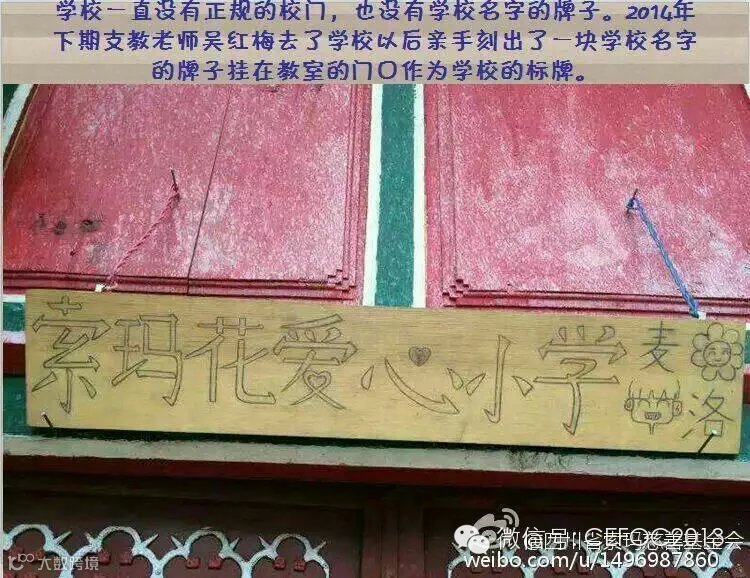 学校一直没有正规的校门，也没有学校名字的牌子。2014年
下期支教老师吴红梅去了学校以后亲手刻出了一块学校名字
的牌子挂在教室的门口作为学校的标牌。
索玛花爱心小学
麦
洛
微信号:CFFGC2013
索玛慈善基金会
weibo.com/u/1496987860
大数跨境